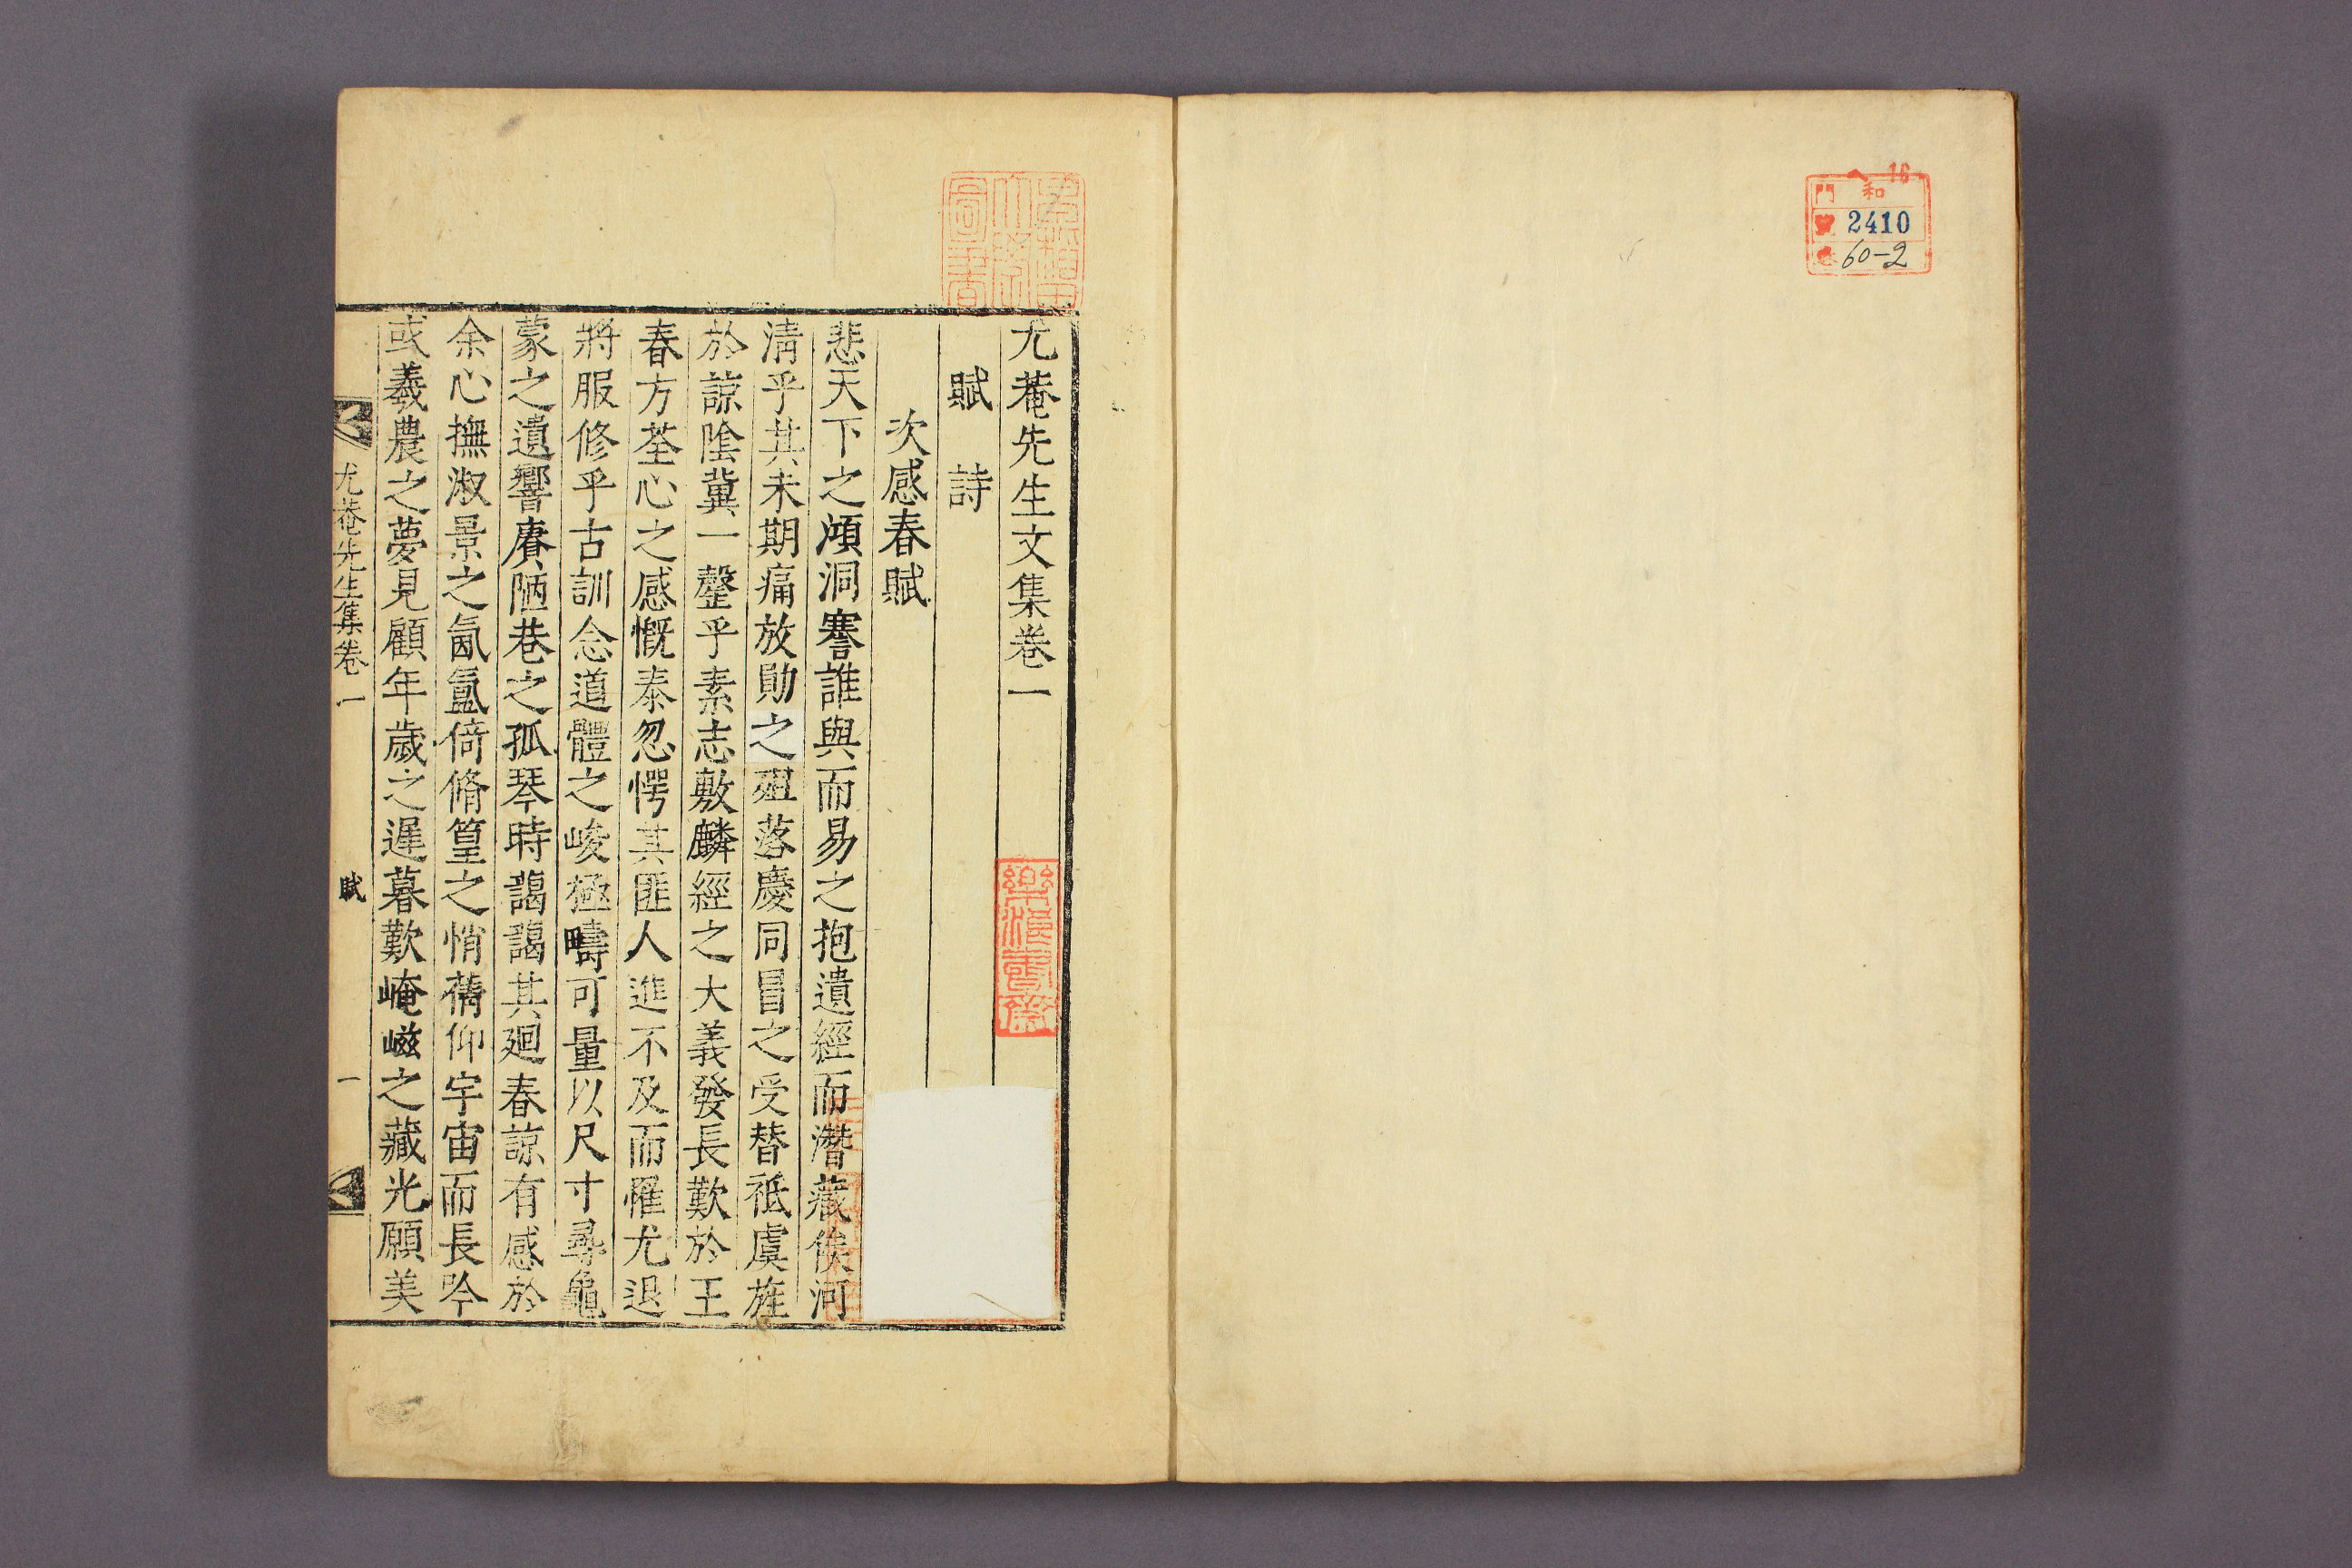 16
門 和
2410
60-2
尤菴先生文集卷一
賦 詩
次感春賦
悲天下之澒洞謇誰與而易之抱遺經而潛藏俟河
清乎其未期痛放勛之殂落慶同冒之受替祗虞旌
於諒陰冀一罄乎素志敷麟經之大義發長歎於王
春方荃心之感慨泰忽愕其匪人進不及而罹尤退
將服修乎古訓念道體之峻極疇可量以尺寸尋龜
蒙之遺響賡陋巷之孤琴時謁謁其廻春諒有感於
余心撫淑景之氤氳倚脩篁之悄蒨仰宇宙而長吟
或羲農之夢見顧年歲之遲暮歎崦嵫之藏光願美
尤菴先生集卷一
賦
一